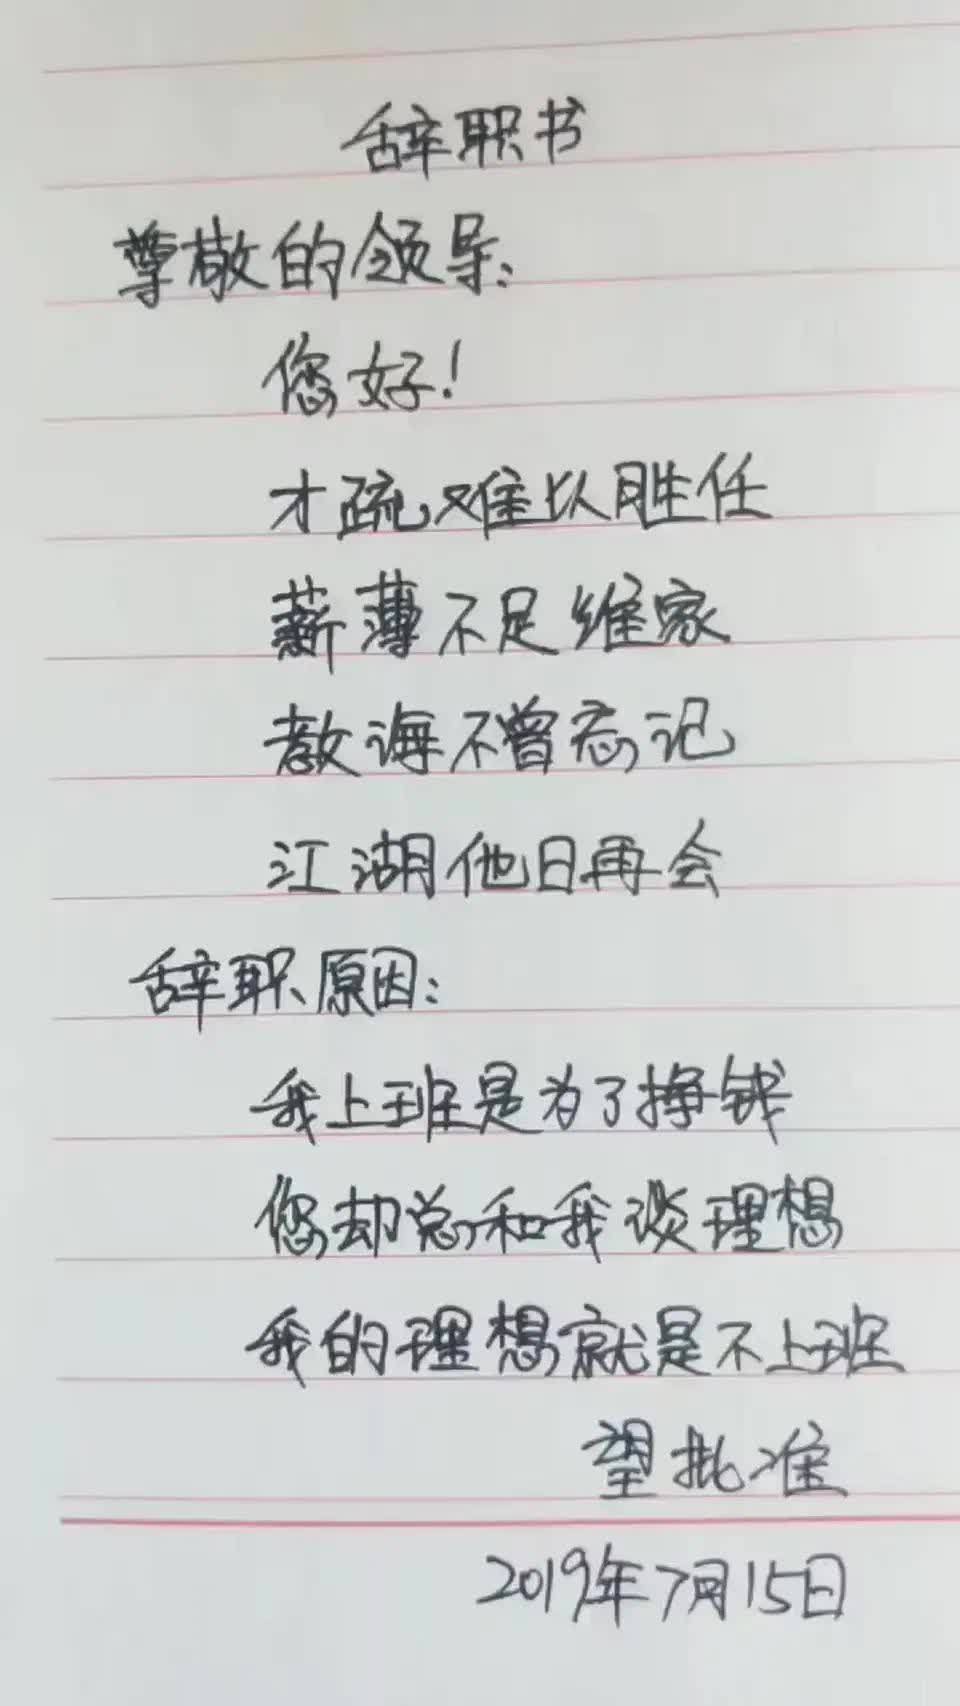 辞职书
尊敬的领导：
您好！
才疏难以胜任
薪薄不足维家
教诲不曾忘记
江湖他日再会
辞职原因：
我上班是为了挣钱
您却总和我谈理想
我的理想就是不上班
望批准
2019年7月15日